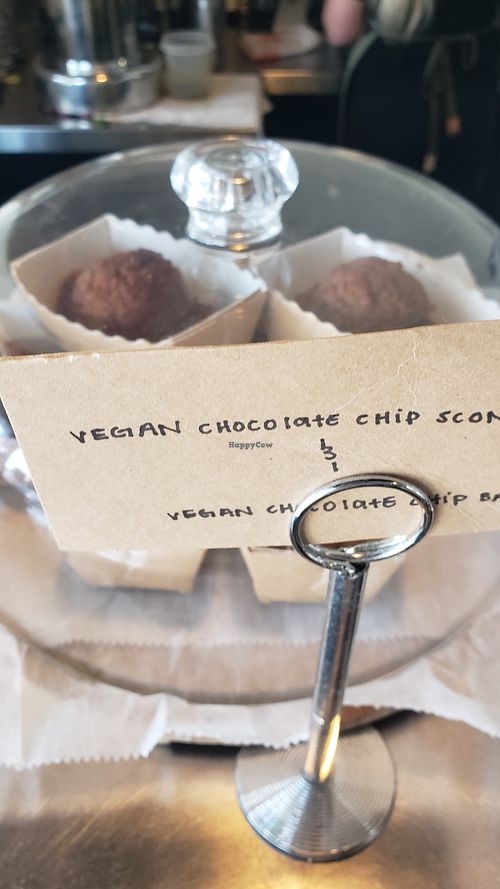 VEGAN CHOCOLATE CHIP SCON
HappyCow
VEGAN CHOCOLATE CHIP BA